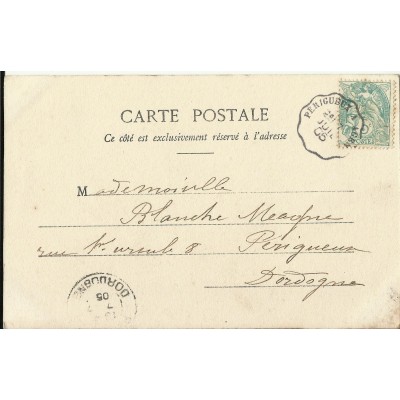 CARTE POSTALE
Ce côté est exclusivement réservé à l'adresse
PERIGUEUX
JUIL
05
Mademoiselle
Blanche
rue Ste ursule 8 Périgueux
Dordogne
DORDOGNE
7
05